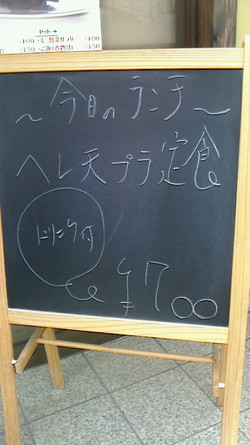 ～今日のランチ～
ヘレ天プラ定食
ドリンク付
¥700